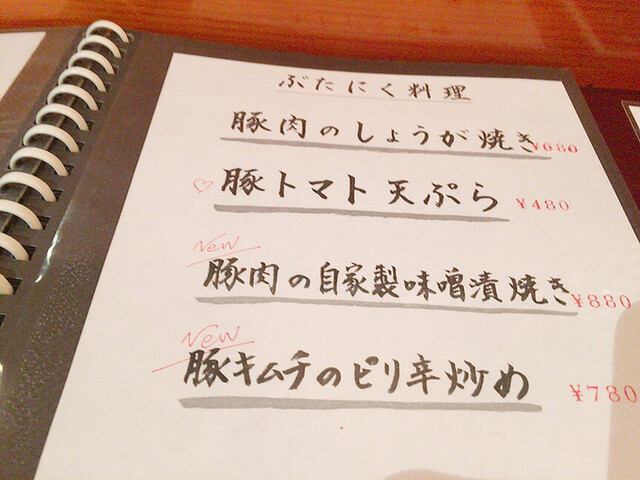 ぶたにく料理
豚肉のしょうが焼き ¥680
♡豚トマト天ぷら ¥480
New
豚肉の自家製味噌漬焼き ¥880
New
豚キムチのピリ辛炒め ¥780